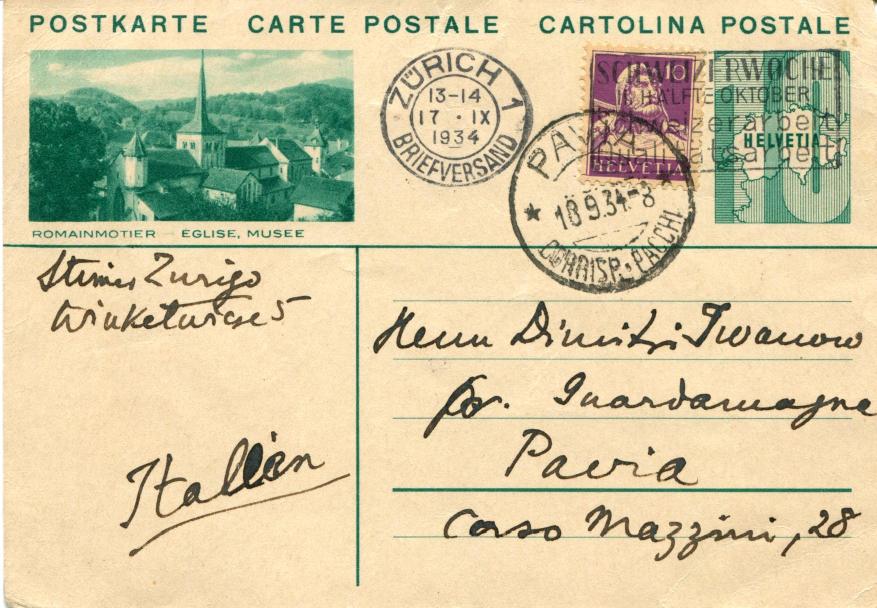 POSTKARTE CARTE POSTALE CARTOLINA POSTALE
ROMAINMOTIER – ÉGLISE, MUSÉE
ZÜRICH 1
13–14
17 · IX
1934
BRIEFVERSAND
10
HELVETIA
SCHWEIZERWOCHE
II. HÄLFTE OKTOBER
Schweizerarbeit
Qualitätsarbeit
HELVETIA
10
PAVIA
18.9.34-8
CORRISP. PACCHI
Zurigo
Winkelwiese 5
Italien
Herrn Dimitri Iwanow
pr. Guardamagna
Pavia
Corso Mazzini, 28